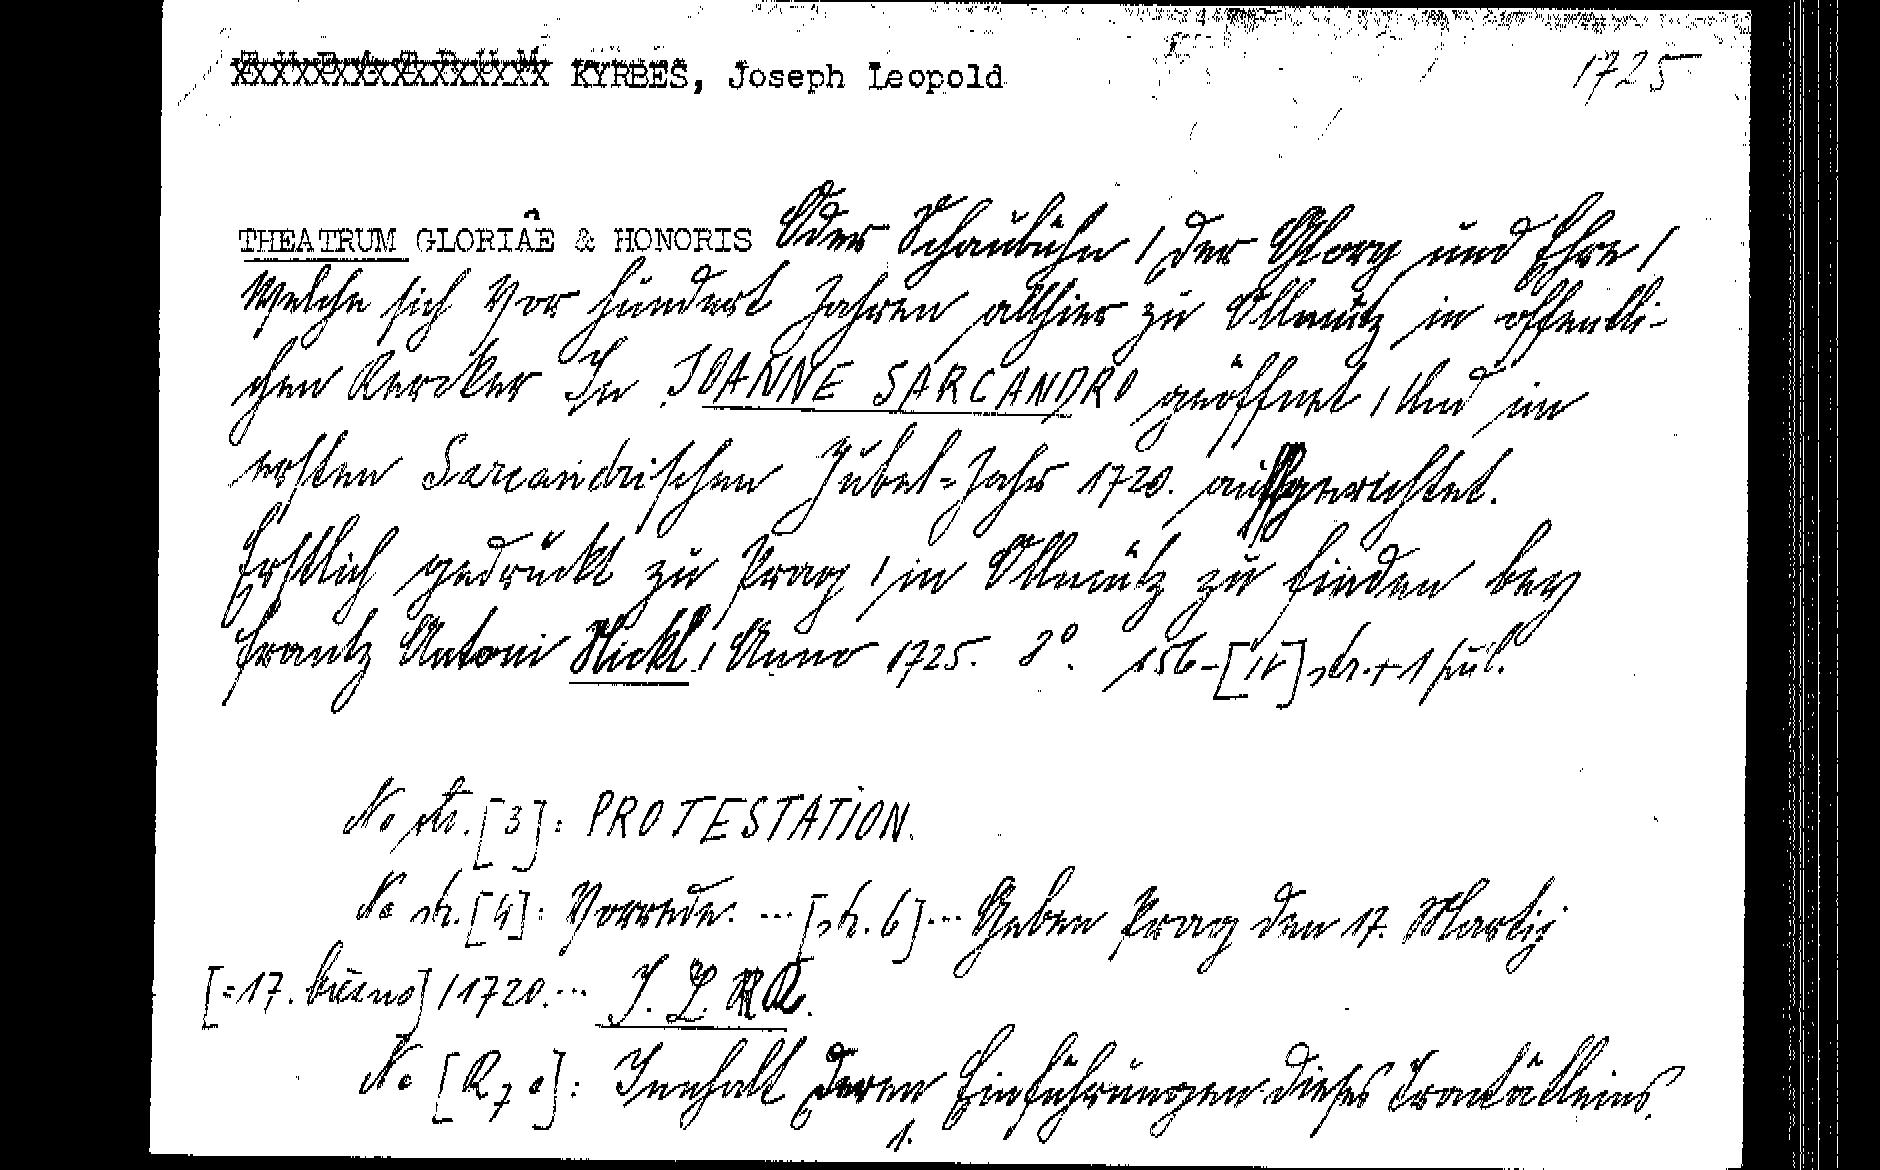 KYRBES, Joseph Leopold 1725
THEATRUM GLORIÂE & HONORIS Oder Schaubühn / der Glory und Ehre /
Welche sich vor hundert Jahren allhier zu Ollmütz in öffentli-
chen Kercker In JOANNE SARCANDRO geöffnet / Und im
ersten Sarcandrischen Jubel-Jahr 1720. auffgerichtet.
Erstlich gedruckt zu Prag / in Ollmütz zu finden bey
Frantz Antoni Hickl / Anno 1725. 2°. str. + 1 
Na str. [3]: PROTESTATION.
Na str. [4]: Vorrede. ... [str. 6] ... Geben Prag den 17. Martij
[=17. března] / 1720. ... J. L. K.
Na [R7a]: Innhalt deren Einführungen dieses Tractätleins.
1.